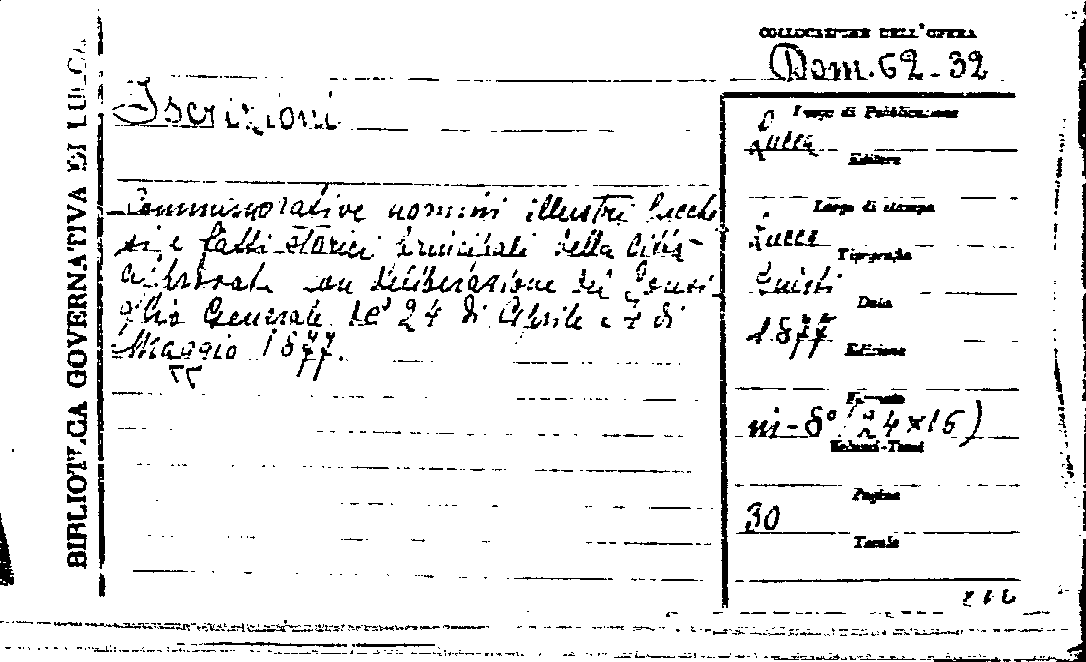 BIBLIOTECA GOVERNATIVA DI LUCCA
COLLOCAZIONE DELL'OPERA
Dom. 62-32
Iscrizioni
Commemorative uomini illustri lucche
si e fatti storici principali della città
approvate con deliberazione del Consi-
glio Generale de' 24 di Aprile e 4 di
Maggio 1877.
Luogo di Pubblicazione
Lucca
Editore
Luogo di stampa
Lucca
Tipografia
Giusti
Data
1877
Edizione
Formato
in-8° (24×16)
Volumi-Tomi
Pagine
30
Tavole